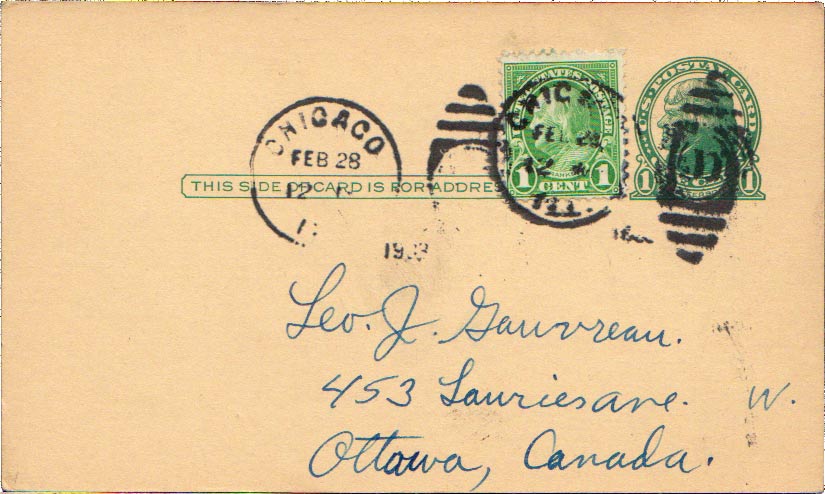 U.S. POSTAL CARD
1 1
UNITED STATES POSTAGE
1 CENT 1
CHICAGO
FEB 28
12
CHICA
FEB 28
12
ILL.
THIS SIDE OF CARD IS FOR ADDRES
193
Leo. J. Gauvreau.
453 Lauriesave. W.
Ottawa, Canada.